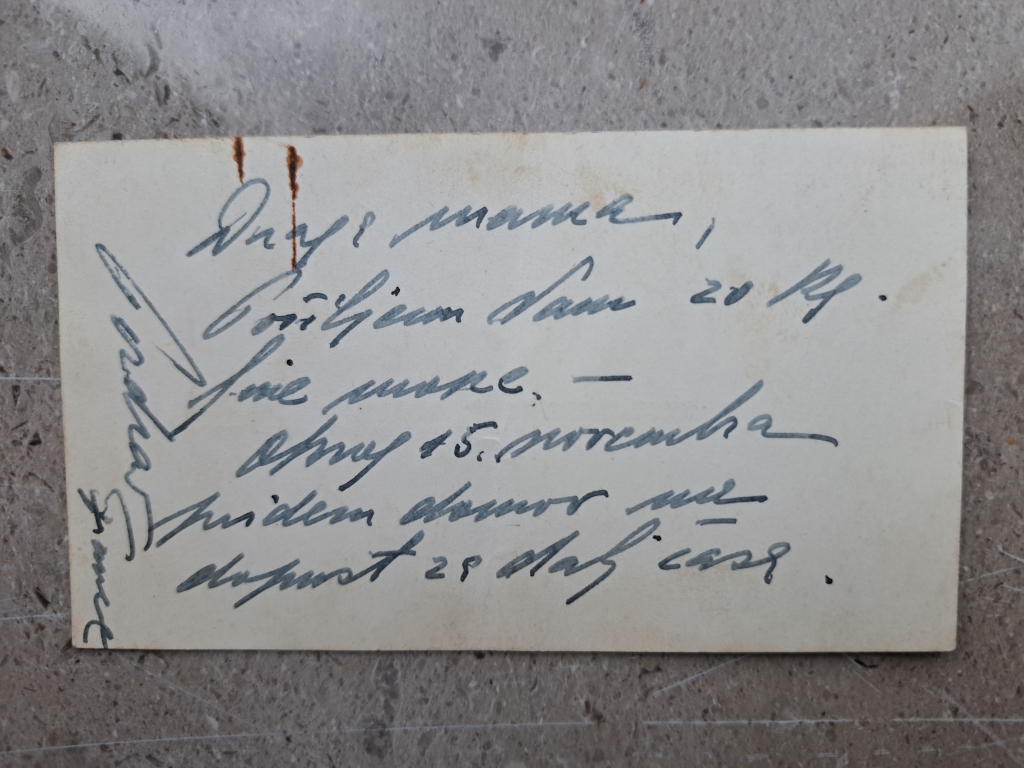 Draga mama,
Pošiljem Vam 20 kg.
fine moke. —
okrog 15. novembra
pridem domov na
dopust za dalj časa.
Pozdrav